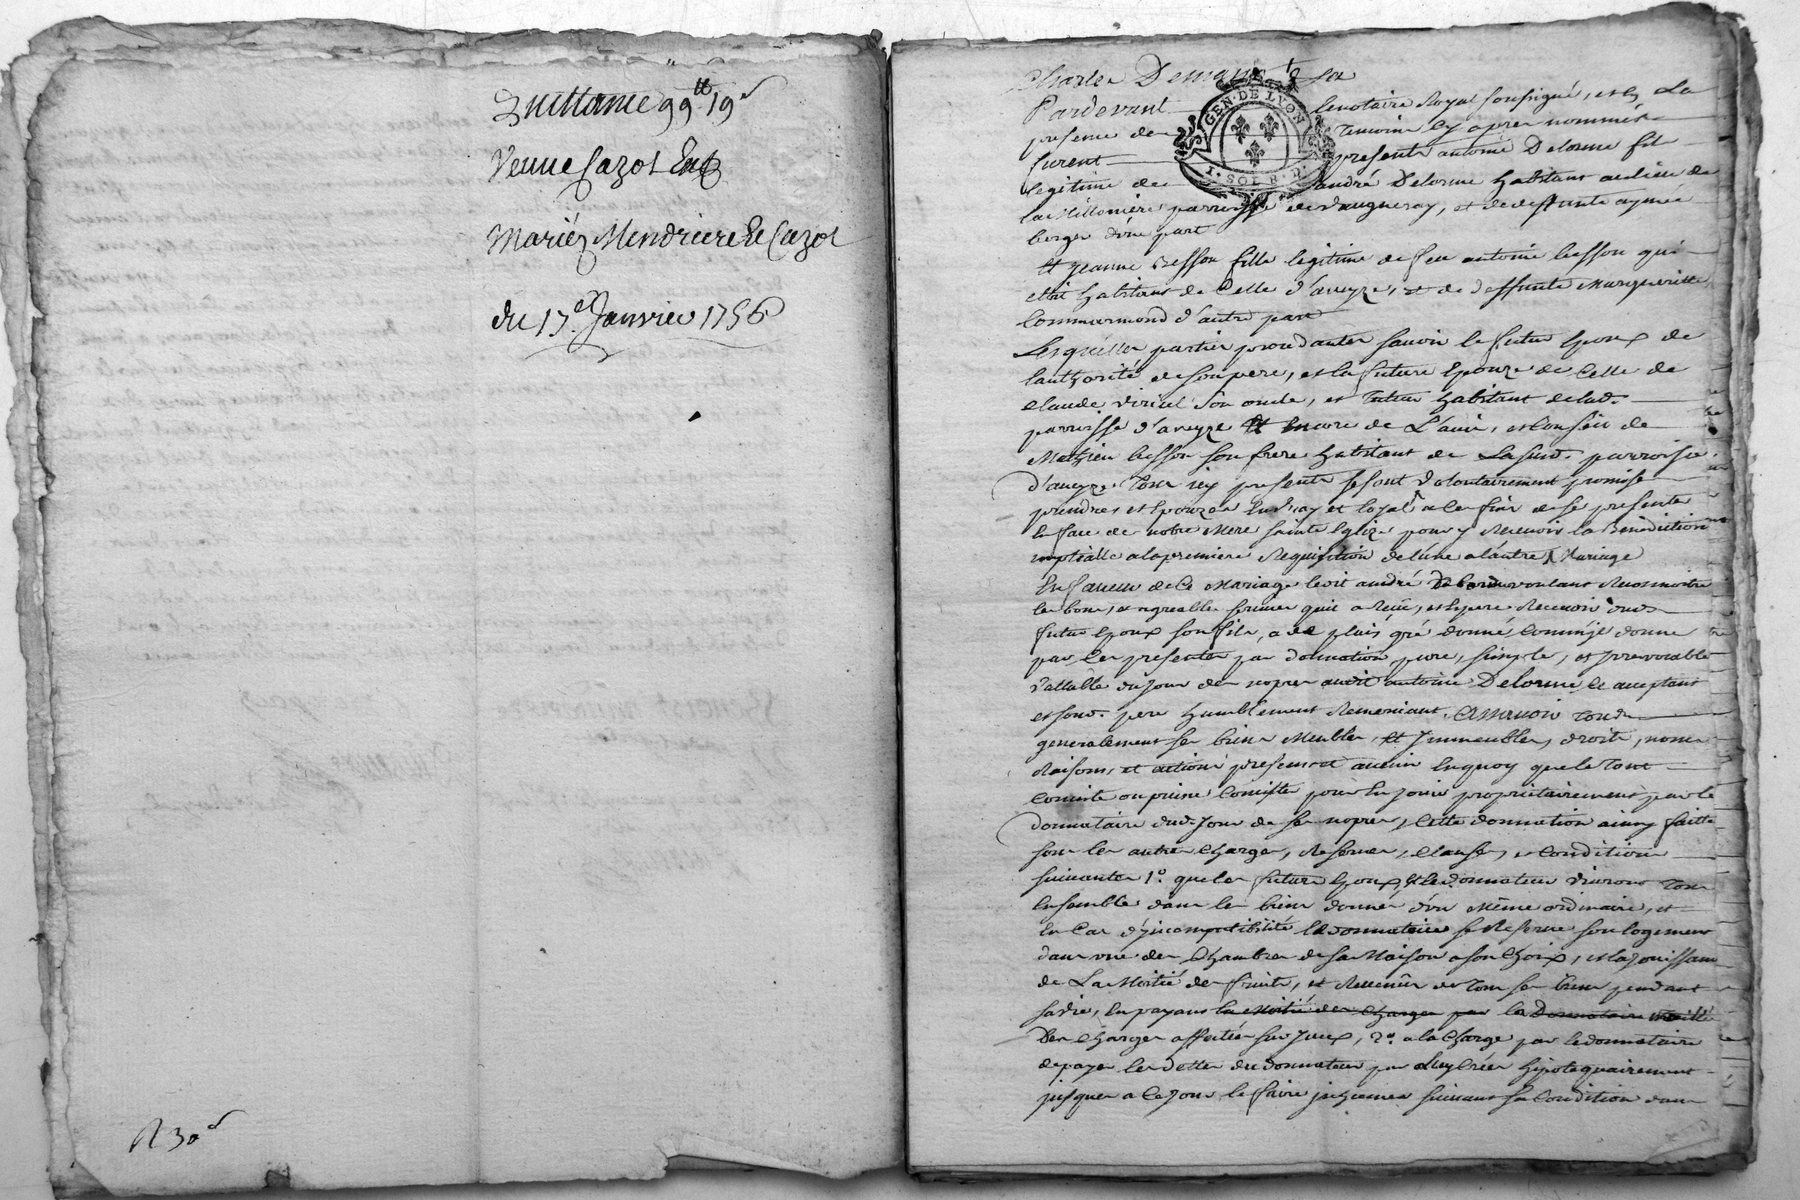 Quittance 99tt 19s
Veuve Cazot Et
Mariéz Mendriere Et Cazot
du 17e Janvier 1756
R 30s
Pardevant le notaire Royal soussigné, et En La
presence des Temoins Cy apres nommés
furent presents antoine Delorme fils
legitime de andré Delorme habitant au lieu de
la Millonière parroisse de vaugneray, et de deffunte aymée
berger d'une part
Et jeanne Besson fille legitime de feu antoine besson qui
etoit habitant de Celle d'aveyze, et de deffunte Margueritte
Commarmond d'autre part
Lesquelles parties procedantes savoir le futur Epoux de
l'authorité de son pere, et la future Epouze de Celle de
claude viricel son oncle, et Tuteur habitant de lad.
parroisse d'aveyze Et Encore de L'avis, et Conseil de
Mathieu besson son frere habitant de La susd. parroisse
d'aveyze Tous icy presents se sont volontairement promis se
prendre et Epouzer En vray et loyal a ces fins de se presenter
En face de notre Mere sainte Eglize pour y Recevoir la Benediction
nuptialle a la premiere Requisition de l'une a l'autre Mariage
En faveur de Ce Mariage led. andré Delorme voulant Reconnoitre
les bons, et agreables services qu'il a Reçus, et Espere Recevoir dud.
futur Epoux son fils, a de plein gré donné, Comme je donne
par les presentes par donnation pure, simple, et Irrevocable
vallable du jour des nopces audit antoine Delorme Ce acceptant
et sond. pere humblement Remerciant, Assavoir Tous
generalement ses biens Meubles, et Immeubles, droits, noms
Raisons, et actions presents et avenir En quoy que le tout
Consiste ou puisse Consister pour En jouir proprietairement par le
donnataire dud. jour de ses nopces, Cette donnation ainsy faitte
sous les autres Charges, Reserves, Clauses, et Conditions
suivantes 1°. que les futurs Epoux, et le donnateur vivront Tous
Ensemble dans les biens donnés d'un Même ordinaire, et
En Cas d'jncompatibilité le donnateur se Reserve son logement
dans une des Chambres de sa Maison a son Choix, et la jouissance
de La Moitié des fruits, et Revenus de Tous ses biens pendant
sa vie, En payant la Moitié des Charges par le Donnataire moitié
Des Charges affectées sur Iceux, 2°. a la Charge par le donnataire
de payer les dettes du donnateur par luy Créées hipotequairement
jusques a Ce jour le faire suivant sa Condition dans
GEN. DE LYON
I. SOL 8. D.